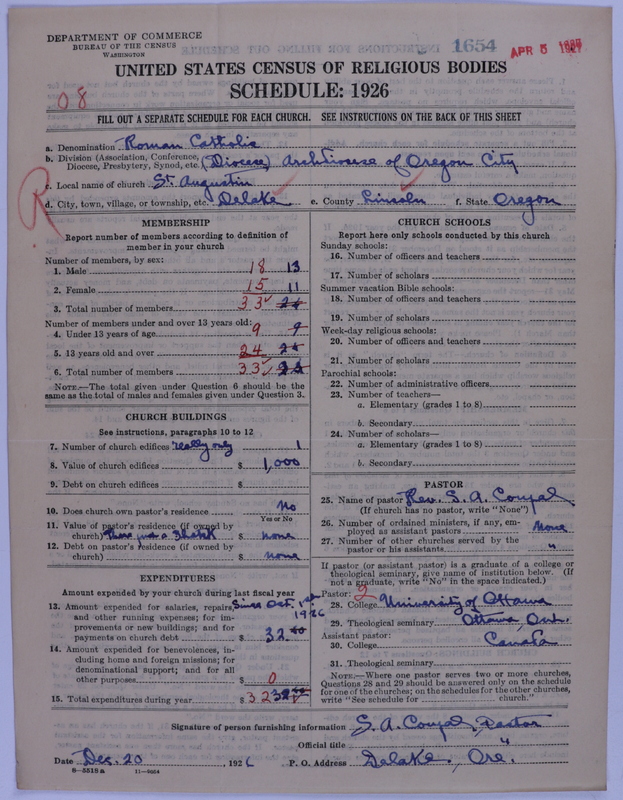 DEPARTMENT OF COMMERCE
BUREAU OF THE CENSUS
WASHINGTON
1654
APR 5 1927
UNITED STATES CENSUS OF RELIGIOUS BODIES
SCHEDULE: 1926
08
FILL OUT A SEPARATE SCHEDULE FOR EACH CHURCH. SEE INSTRUCTIONS ON THE BACK OF THIS SHEET
R
a. Denomination Roman Catholic
b. Division (Association, Conference, Diocese, Presbytery, Synod, etc. (Diocese) Archdiocese of Oregon City
c. Local name of church St. Augustin
d. City, town, village, or township, etc. Delake e. County Lincoln f. State Oregon
MEMBERSHIP
Report number of members according to definition of member in your church
Number of members, by sex:
1. Male 18 13
2. Female 15 11
3. Total number of members 33 24
Number of members under and over 13 years old:
4. Under 13 years of age 9 9
5. 13 years old and over 24
6. Total number of members 33
NOTE.—The total given under Question 6 should be the same as the total of males and females given under Question 3.
CHURCH BUILDINGS
See instructions, paragraphs 10 to 12
7. Number of church edifices really only 1
8. Value of church edifices $ 1,000
9. Debt on church edifices $
10. Does church own pastor's residence No
Yes or No
11. Value of pastor's residence (if owned by church) There just a Shack $ none
12. Debt on pastor's residence (if owned by church) $ none
EXPENDITURES
Amount expended by your church during last fiscal year
Since Oct. 1st 1926
13. Amount expended for salaries, repairs, and other running expenses; for improvements or new buildings; and for payments on church debt $ 32.00
14. Amount expended for benevolences, including home and foreign missions; for denominational support; and for all other purposes $ 0
15. Total expenditures during year $ 32 32.00
CHURCH SCHOOLS
Report here only schools conducted by this church
Sunday schools:
16. Number of officers and teachers
17. Number of scholars
Summer vacation Bible schools:
18. Number of officers and teachers
19. Number of scholars
Week-day religious schools:
20. Number of officers and teachers
21. Number of scholars
Parochial schools:
22. Number of administrative officers
23. Number of teachers—
a. Elementary (grades 1 to 8)
b. Secondary
24. Number of scholars—
a. Elementary (grades 1 to 8)
b. Secondary
PASTOR
25. Name of pastor Rev. S. A. Coupal
(If church has no pastor, write "None")
26. Number of ordained ministers, if any, employed as assistant pastors None
27. Number of other churches served by the pastor or his assistants "
If pastor (or assistant pastor) is a graduate of a college or theological seminary, give name of institution below. (If not a graduate, write "No" in the space indicated.)
Pastor: 2
28. College University of Ottawa
29. Theological seminary Ottawa, Ont.
Assistant pastor:
30. College Canada
31. Theological seminary
NOTE.—Where one pastor serves two or more churches, Questions 28 and 29 should be answered only on the schedule for one of the churches; on the schedules for the other churches, write "See schedule for church."
Signature of person furnishing information S. A. Coupal, Pastor
Official title "
Date Dec. 20, 1926 P. O. Address Delake, Ore.
8—5518a 11—9054